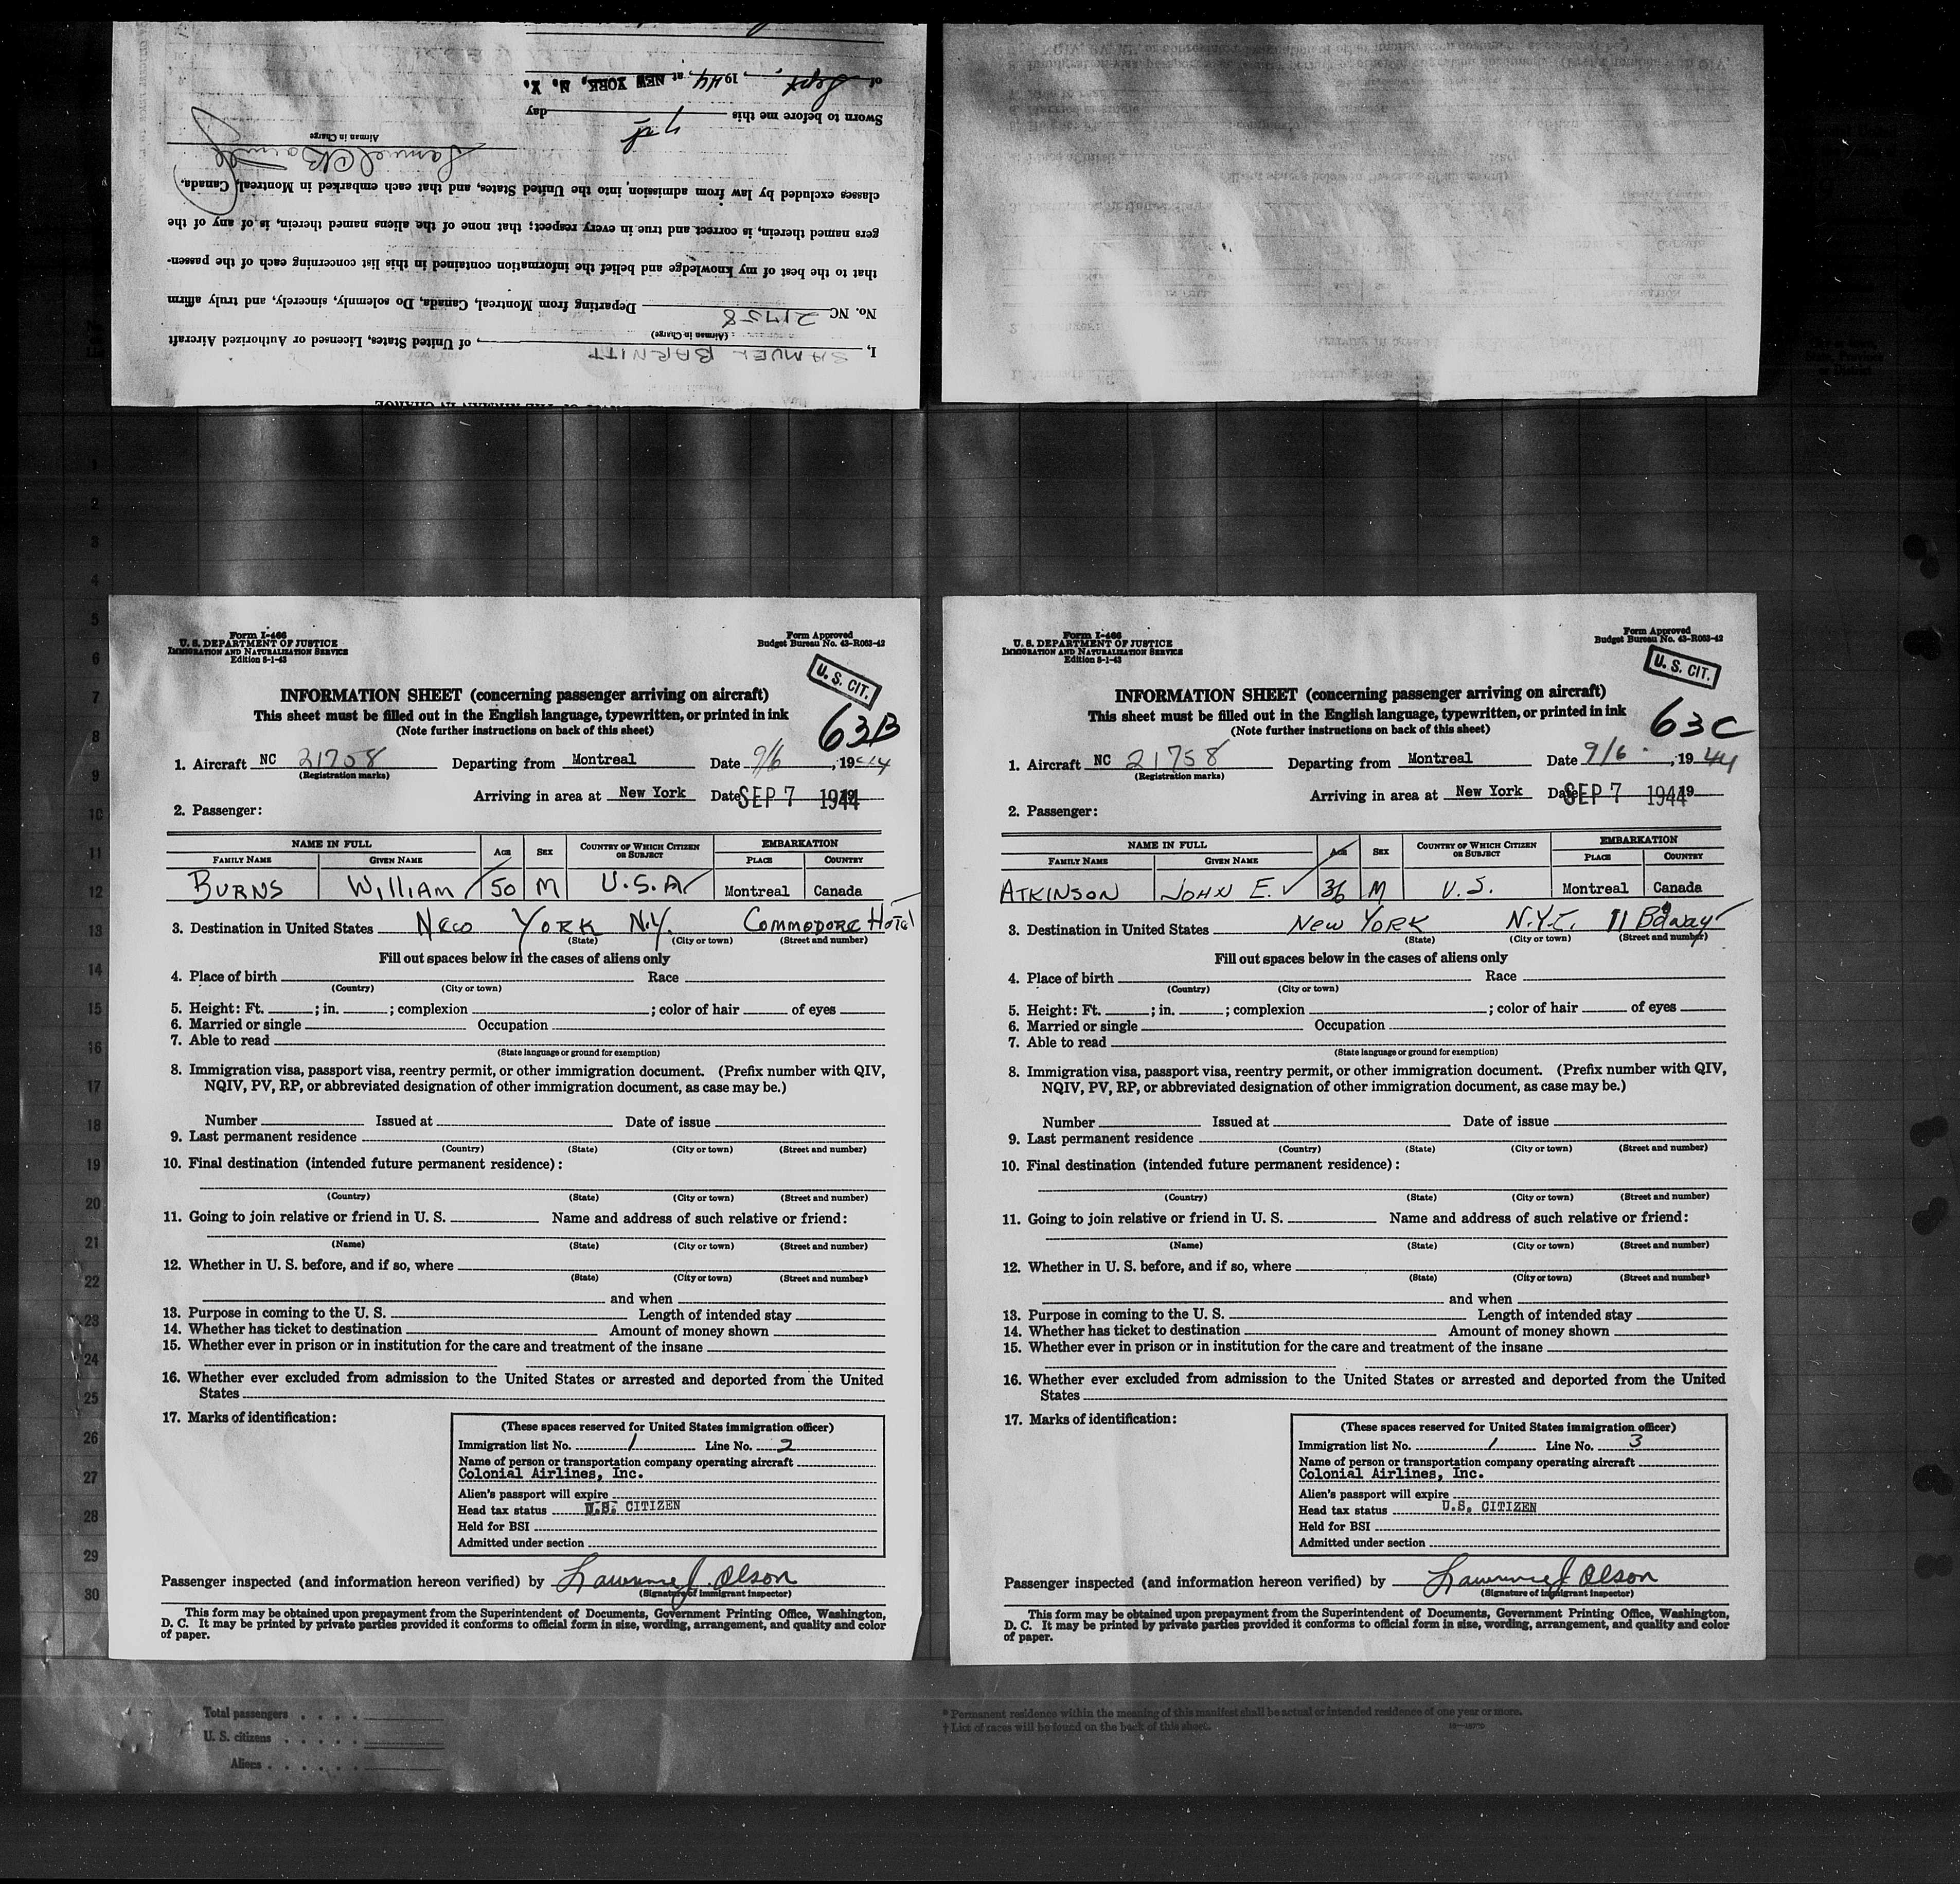 I, SAMUEL BARNITT, of United States, Licensed or Authorized Aircraft
(Airman in Charge)
No. NC 21758 Departing from Montreal, Canada, Do solemnly, sincerely, and truly affirm
that to the best of my knowledge and belief the information contained in this list concerning each of the passen-
gers named therein, is correct and true in every respect; that none of the aliens named therein, is of any of the
classes excluded by law from admission into the United States, and that each embarked in Montreal, Canada.
Airman in Charge
Sworn to before me this 7th day
of Sept, 1944, at NEW YORK, N. Y.
Form I-466
U. S. DEPARTMENT OF JUSTICE
IMMIGRATION AND NATURALIZATION SERVICE
Edition 8-1-43
Form Approved
Budget Bureau No. 43-R063-42
U. S. CIT.
INFORMATION SHEET (concerning passenger arriving on aircraft)
This sheet must be filled out in the English language, typewritten, or printed in ink
(Note further instructions on back of this sheet)
63B
1. Aircraft NC 21758 Departing from Montreal Date 9/6, 1944
(Registration marks)
Arriving in area at New York Date SEP 7 1944 19
2. Passenger:
NAME IN FULL AGE SEX COUNTRY OF WHICH CITIZEN OR SUBJECT EMBARKATION
FAMILY NAME GIVEN NAME PLACE COUNTRY
BURNS WILLIAM 50 M U.S.A. Montreal Canada
3. Destination in United States New York N.Y. Commodore Hotel
(State) (City or town) (Street and number)
Fill out spaces below in the cases of aliens only
4. Place of birth Race
(Country) (City or town)
5. Height: Ft. ; in. ; complexion ; color of hair of eyes
6. Married or single Occupation
7. Able to read
(State language or ground for exemption)
8. Immigration visa, passport visa, reentry permit, or other immigration document. (Prefix number with QIV,
NQIV, PV, RP, or abbreviated designation of other immigration document, as case may be.)
Number Issued at Date of issue
9. Last permanent residence
(Country) (State) (City or town) (Street and number)
10. Final destination (intended future permanent residence):
(Country) (State) (City or town) (Street and number)
11. Going to join relative or friend in U. S. Name and address of such relative or friend:
(Name) (State) (City or town) (Street and number)
12. Whether in U. S. before, and if so, where
(State) (City or town) (Street and number)
and when
13. Purpose in coming to the U. S. Length of intended stay
14. Whether has ticket to destination Amount of money shown
15. Whether ever in prison or in institution for the care and treatment of the insane
16. Whether ever excluded from admission to the United States or arrested and deported from the United
States
17. Marks of identification:
(These spaces reserved for United States immigration officer)
Immigration list No. 1 Line No. 2
Name of person or transportation company operating aircraft
Colonial Airlines, Inc.
Alien's passport will expire
Head tax status U.S. CITIZEN
Held for BSI
Admitted under section
Passenger inspected (and information hereon verified) by Lawrence J. Olson
(Signature of immigrant inspector)
This form may be obtained upon prepayment from the Superintendent of Documents, Government Printing Office, Washington,
D. C. It may be printed by private parties provided it conforms to official form in size, wording, arrangement, and quality and color
of paper.
Form I-466
U. S. DEPARTMENT OF JUSTICE
IMMIGRATION AND NATURALIZATION SERVICE
Edition 8-1-43
Form Approved
Budget Bureau No. 43-R063-42
U. S. CIT.
INFORMATION SHEET (concerning passenger arriving on aircraft)
This sheet must be filled out in the English language, typewritten, or printed in ink
(Note further instructions on back of this sheet)
63C
1. Aircraft NC 21758 Departing from Montreal Date 9/6, 1944
(Registration marks)
Arriving in area at New York Date SEP 7 1944 19
2. Passenger:
NAME IN FULL AGE SEX COUNTRY OF WHICH CITIZEN OR SUBJECT EMBARKATION
FAMILY NAME GIVEN NAME PLACE COUNTRY
ATKINSON JOHN E. 36 M U.S. Montreal Canada
3. Destination in United States New York N.Y.C. 11 Bdway
(State) (City or town) (Street and number)
Fill out spaces below in the cases of aliens only
4. Place of birth Race
(Country) (City or town)
5. Height: Ft. ; in. ; complexion ; color of hair of eyes
6. Married or single Occupation
7. Able to read
(State language or ground for exemption)
8. Immigration visa, passport visa, reentry permit, or other immigration document. (Prefix number with QIV,
NQIV, PV, RP, or abbreviated designation of other immigration document, as case may be.)
Number Issued at Date of issue
9. Last permanent residence
(Country) (State) (City or town) (Street and number)
10. Final destination (intended future permanent residence):
(Country) (State) (City or town) (Street and number)
11. Going to join relative or friend in U. S. Name and address of such relative or friend:
(Name) (State) (City or town) (Street and number)
12. Whether in U. S. before, and if so, where
(State) (City or town) (Street and number)
and when
13. Purpose in coming to the U. S. Length of intended stay
14. Whether has ticket to destination Amount of money shown
15. Whether ever in prison or in institution for the care and treatment of the insane
16. Whether ever excluded from admission to the United States or arrested and deported from the United
States
17. Marks of identification:
(These spaces reserved for United States immigration officer)
Immigration list No. 1 Line No. 3
Name of person or transportation company operating aircraft
Colonial Airlines, Inc.
Alien's passport will expire
Head tax status U.S. CITIZEN
Held for BSI
Admitted under section
Passenger inspected (and information hereon verified) by Lawrence J Olson
(Signature of immigrant inspector)
This form may be obtained upon prepayment from the Superintendent of Documents, Government Printing Office, Washington,
D. C. It may be printed by private parties provided it conforms to official form in size, wording, arrangement, and quality and color
of paper.
1
2
3
4
5
6
7
8
9
10
11
12
13
14
15
16
17
18
19
20
21
22
23
24
25
26
27
28
29
30
Total passengers
U. S. citizens
Aliens
* Permanent residence within the meaning of this manifest shall be actual or intended residence of one year or more.
† List of races will be found on the back of this sheet.